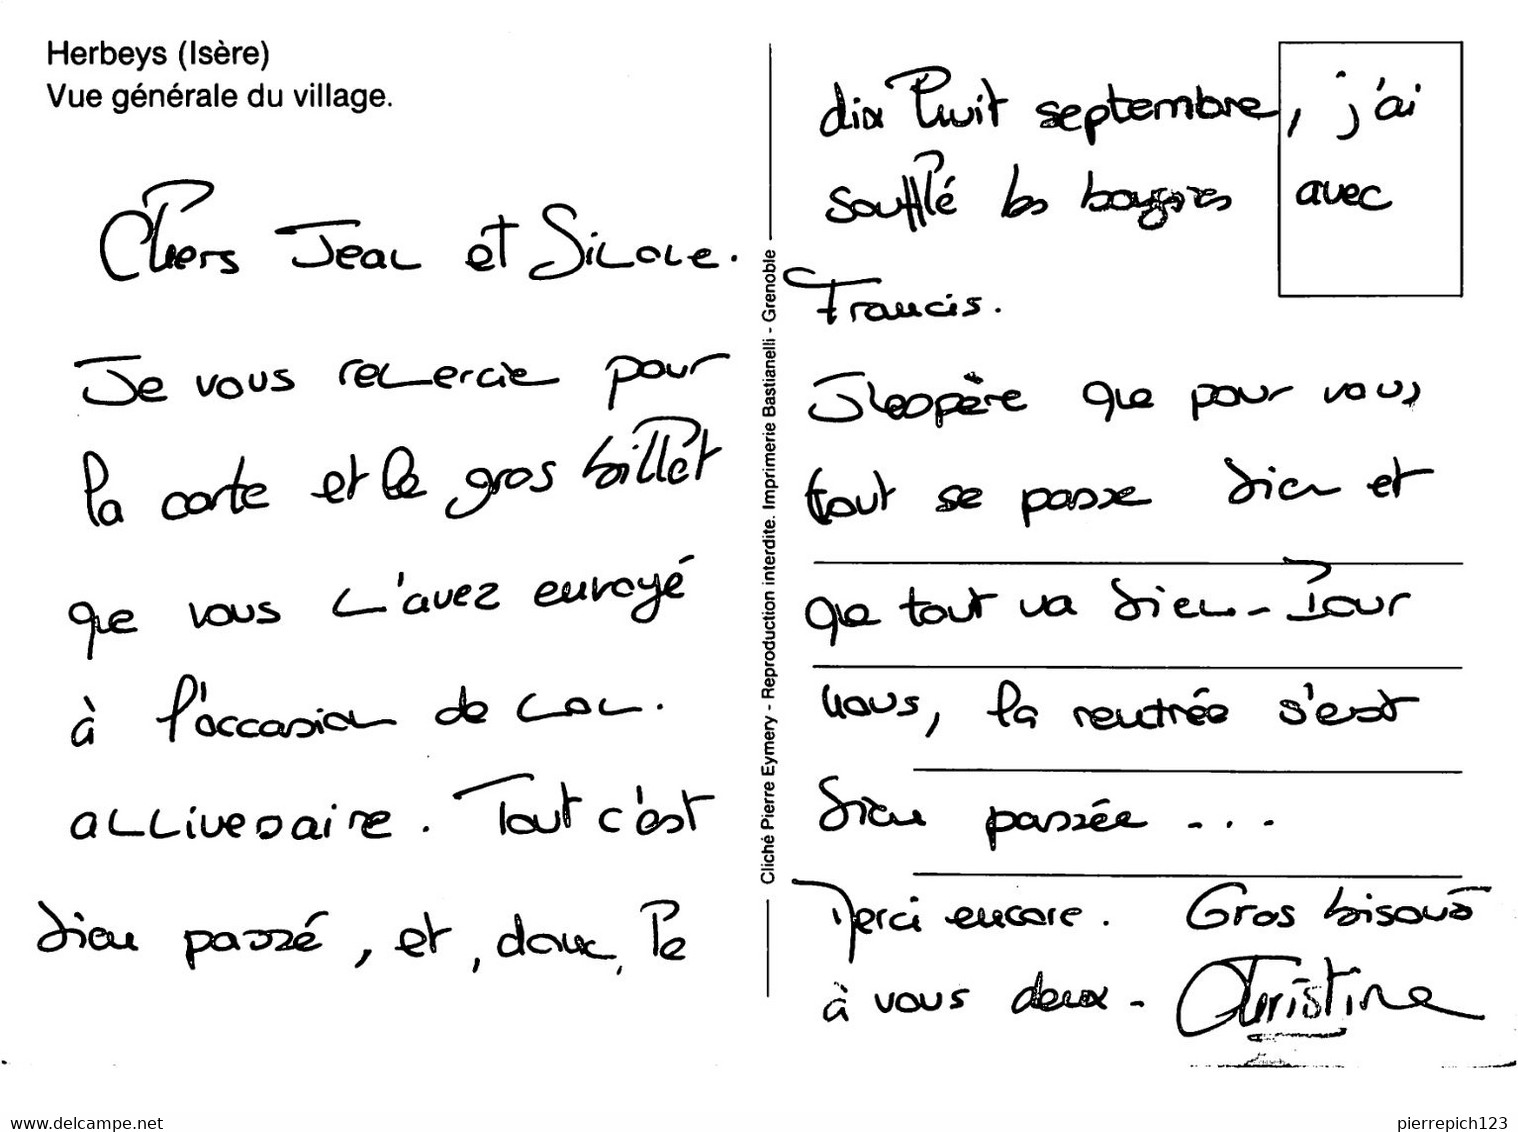 Herbeys (Isère)
Vue générale du village.
Chers Jean et Simone.
Je vous remercie pour
la carte et le gros billet
que vous m'avez envoyé
à l'occasion de mon
anniversaire. Tout c'est
bien passé, et, donc, le
Cliché Pierre Eymery - Reproduction interdite. Imprimerie Bastianelli - Grenoble
dix huit septembre, j'ai
soufflé les bougies avec
Francis.
J'espère que pour vous
tout se passe bien et
que tout va bien - Pour
nous, la rentrée s'est
bien passée ...
Merci encore. Gros bisous
à vous deux - Christine
www.delcampe.net
pierrepich123